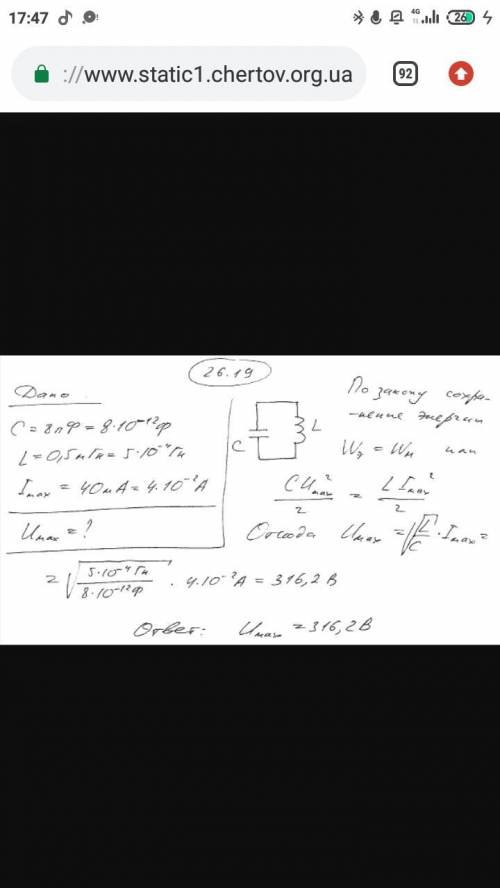 17:47 4G 26
://www.static1.chertov.org.ua 92
26.19
Дано
C = 8 пФ = 8·10⁻¹²Ф
L = 0,5 мГн = 5·10⁻⁴Гн
I_max = 40 мА = 4·10⁻²А
U_max = ?
C L
По закону сохра-
-нение энергии
W_э = W_м или
CU_max²/2 = LI_max²/2
Отсюда U_max = √(L/C) · I_max =
= √(5·10⁻⁴Гн/8·10⁻¹²Ф) · 4·10⁻²А = 316,2 В
Ответ: U_max = 316,2 В